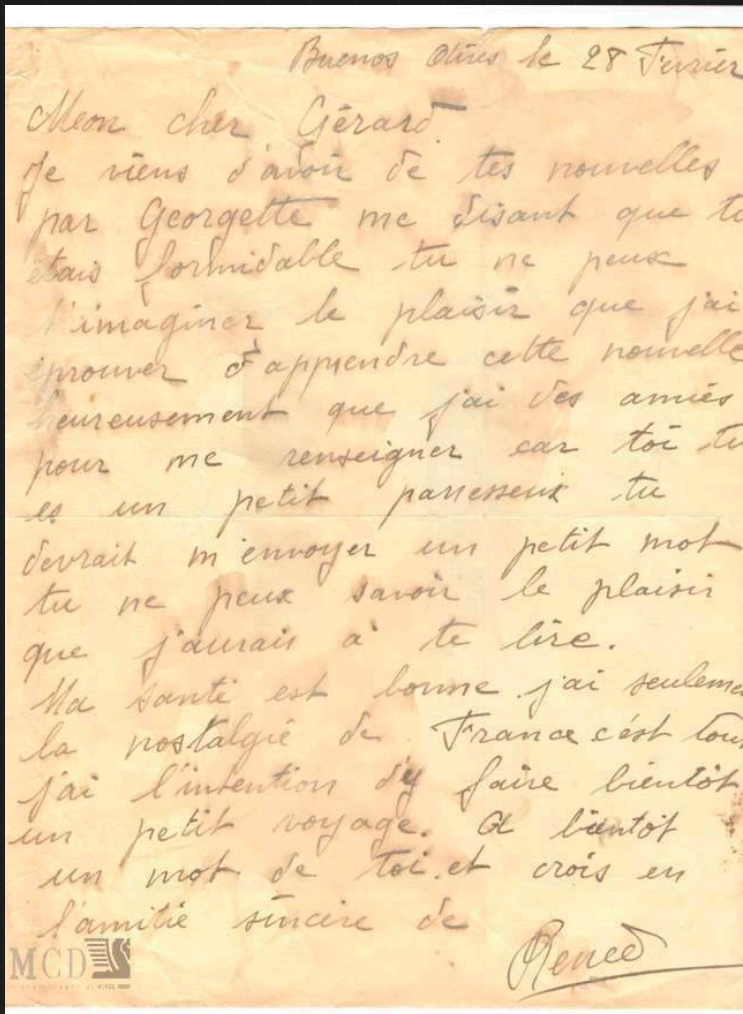 Buenos Aires le 28 Fevrier
Mon cher Gérard
Je viens d'avoir de tes nouvelles
par Georgette me disant que tu
étais formidable tu ne peux
t'imaginer le plaisir que j'ai
éprouver d'apprendre cette nouvelle
heureusement que j'ai des amies
pour me renseigner car toi tu
es un petit paresseux tu
devrait m'envoyer un petit mot
tu ne peux savoir le plaisir
que j'aurais a te lire.
Ma santé est bonne. j'ai seuleme
la nostalgie de France c'est tout
j'ai l'intention d'y faire bientôt
un petit voyage. A bientôt
un mot de toi. et crois en
l'amitié sincère de
Renée
MCD